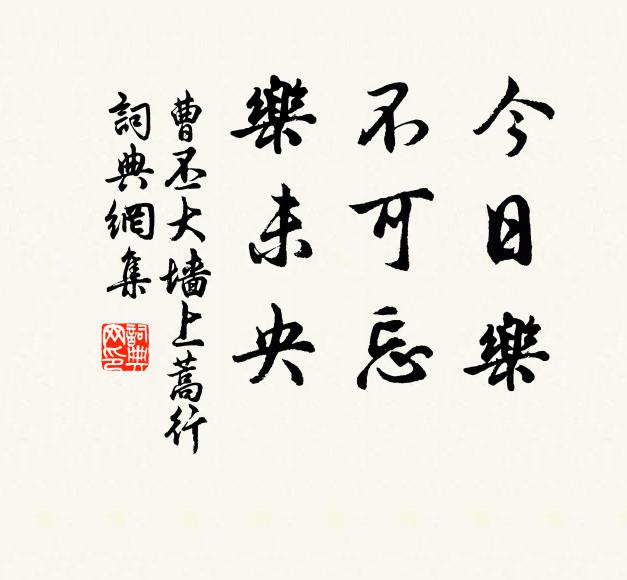 今日樂
不可忘
樂未央
曹丕大墙上蒿行
詞典網集
詞典
网印